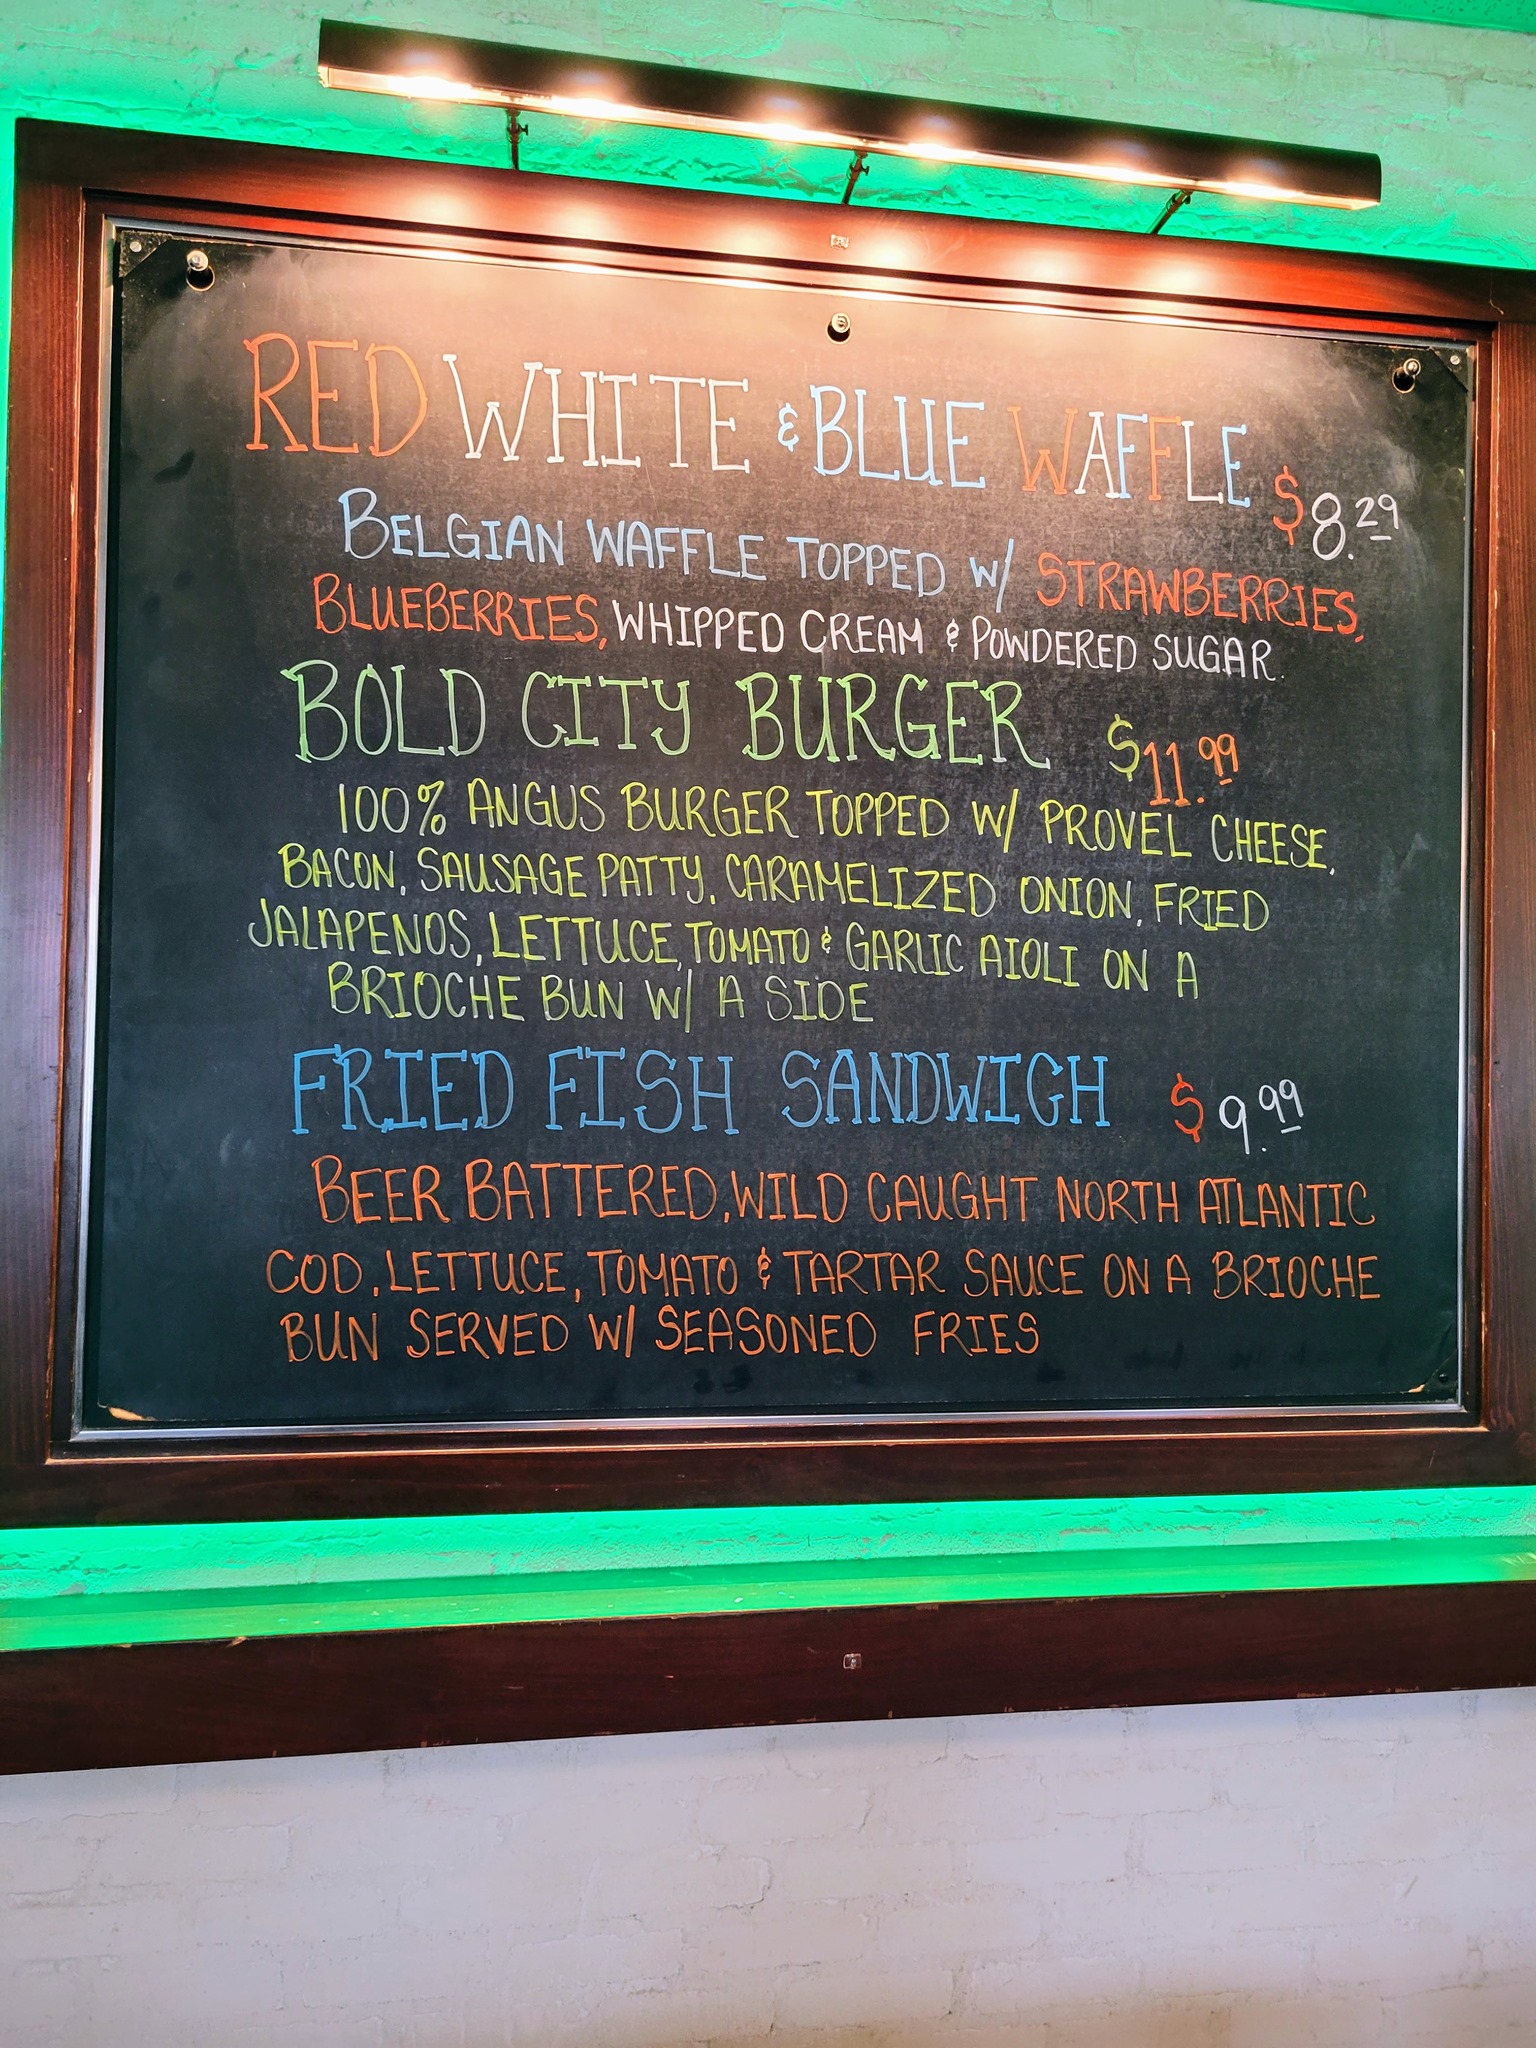 RED WHITE & BLUE WAFFLE $8.29
BELGIAN WAFFLE TOPPED W/ STRAWBERRIES,
BLUEBERRIES, WHIPPED CREAM & POWDERED SUGAR.
BOLD CITY BURGER $11.99
100% ANGUS BURGER TOPPED W/ PROVEL CHEESE,
BACON, SAUSAGE PATTY, CARAMELIZED ONION, FRIED
JALAPENOS, LETTUCE, TOMATO & GARLIC AIOLI ON A
BRIOCHE BUN W/ A SIDE
FRIED FISH SANDWICH $9.99
BEER BATTERED, WILD CAUGHT NORTH ATLANTIC
COD, LETTUCE, TOMATO & TARTAR SAUCE ON A BRIOCHE
BUN SERVED W/ SEASONED FRIES